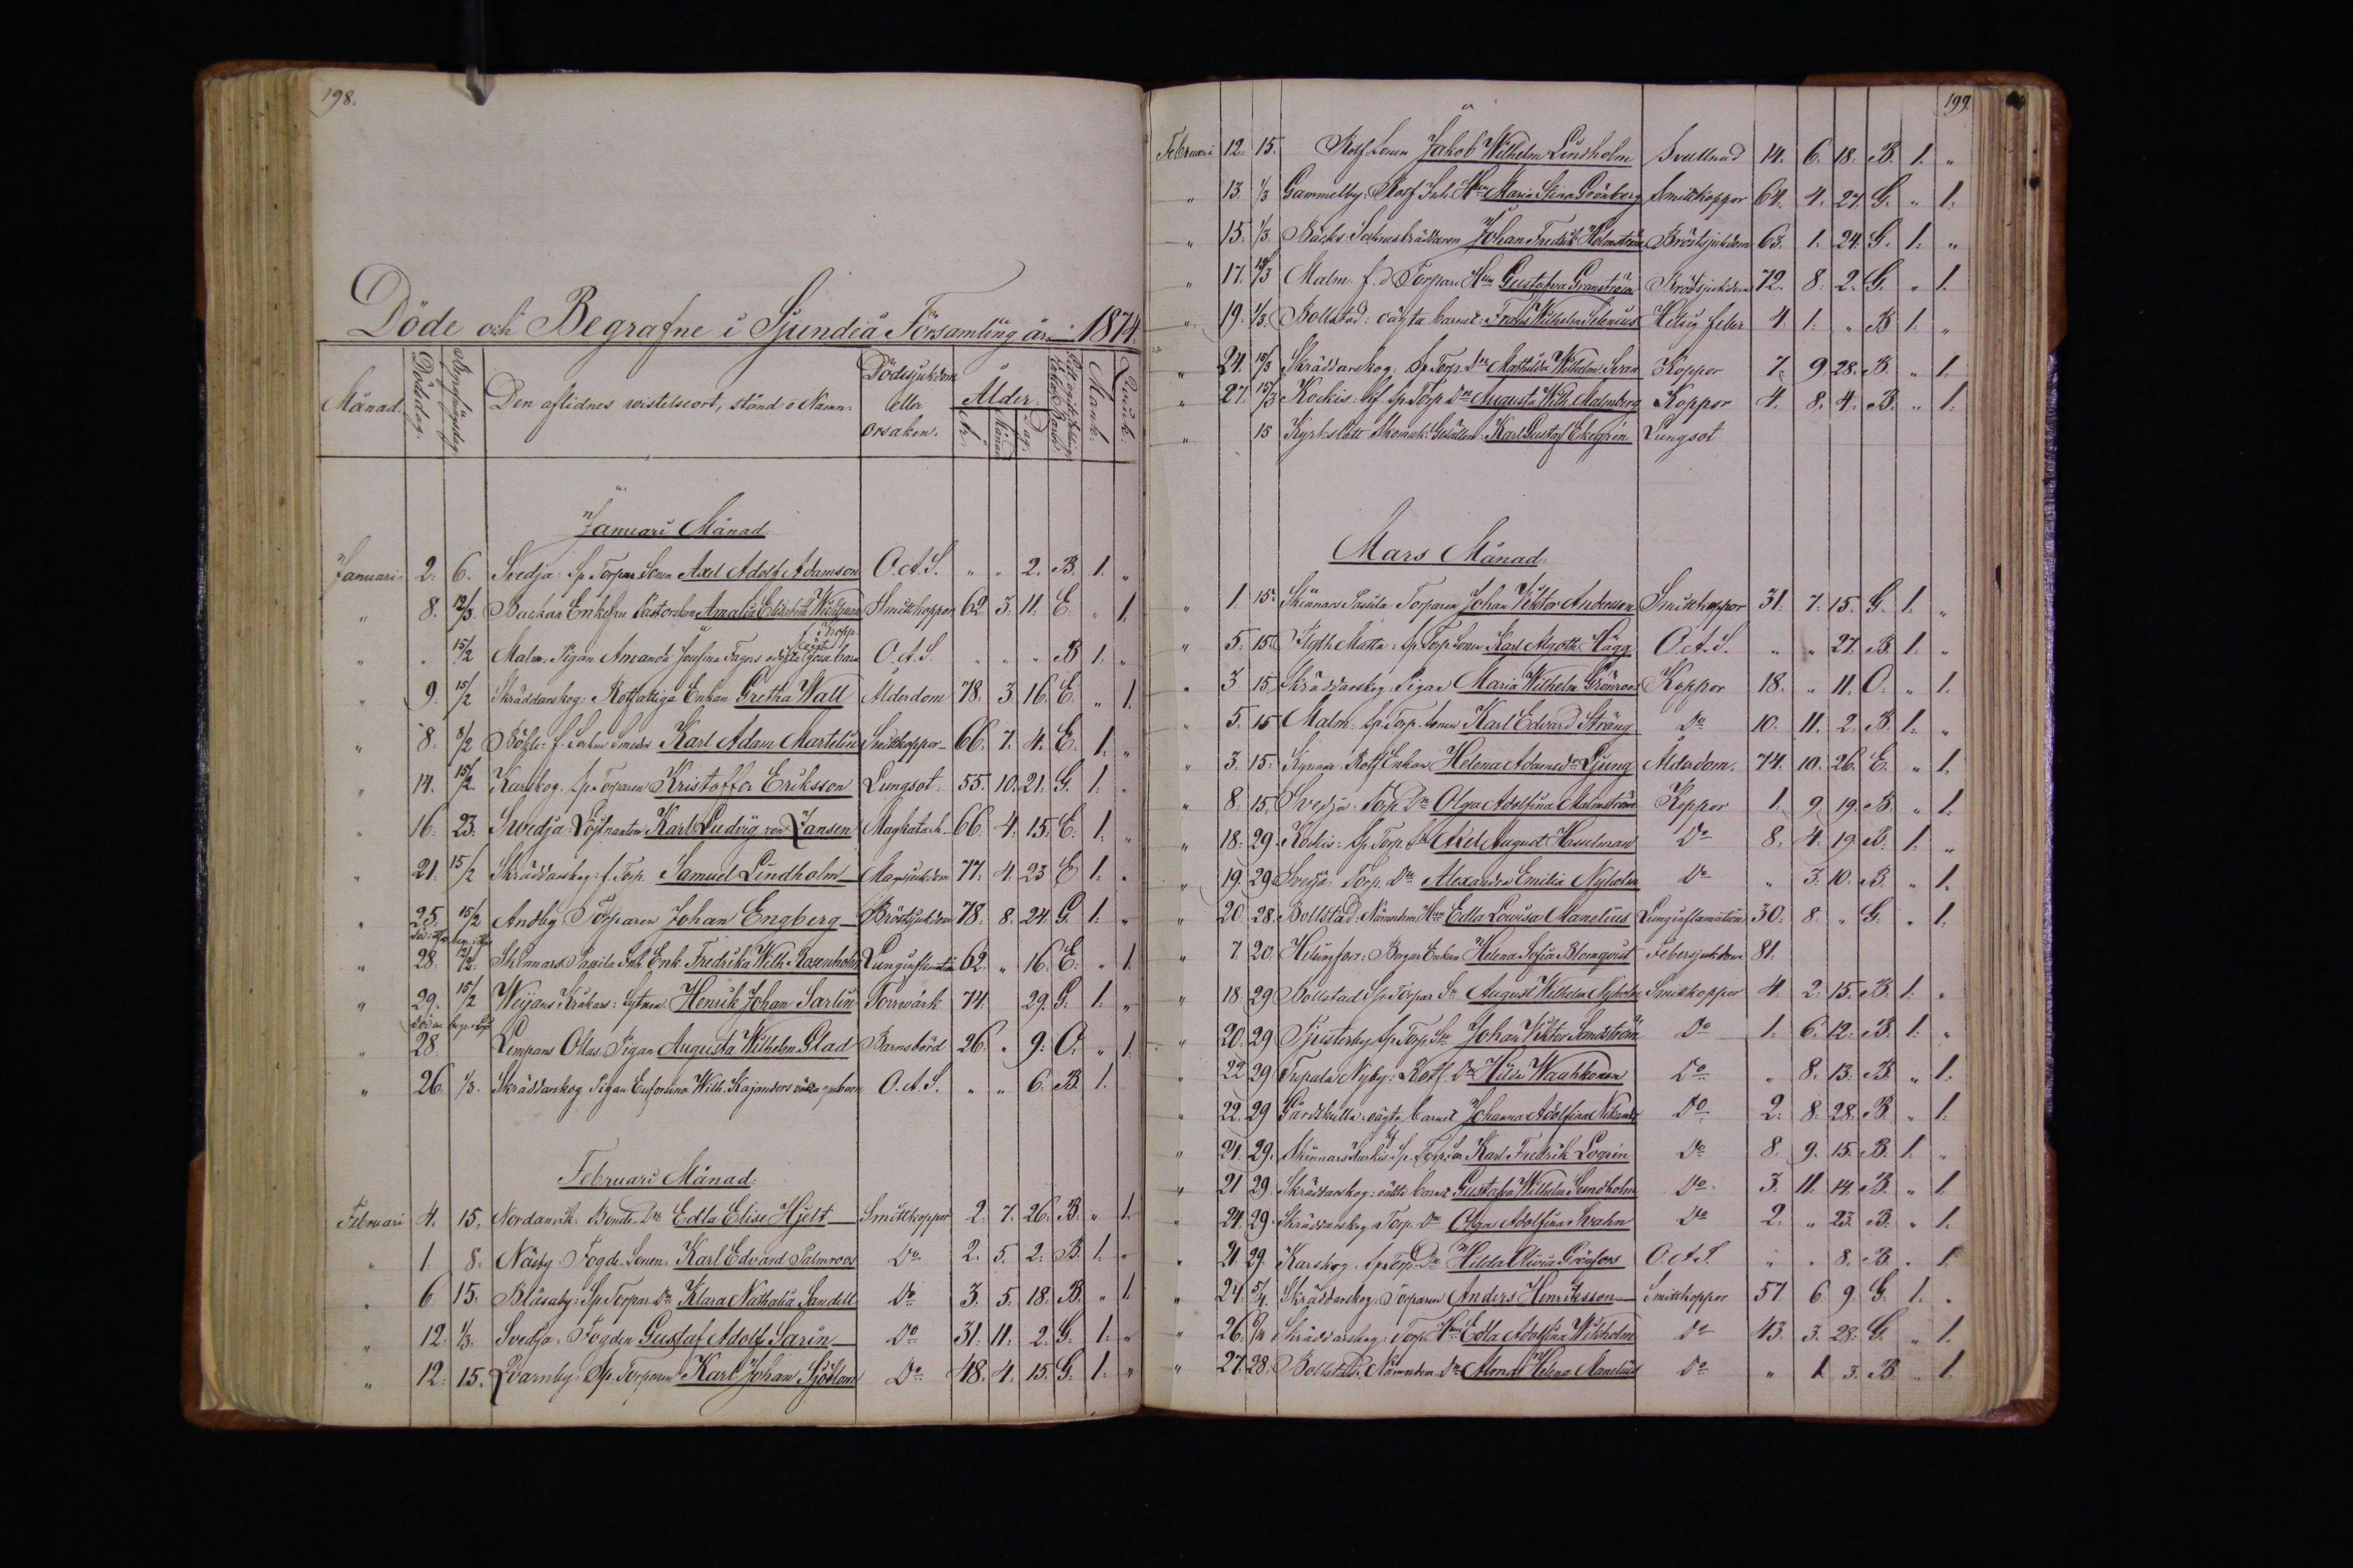 198.
Döde och Begrafne i Sjundeå Församling år 1874.
Månad. Dödsdag. Begrafningsdag. Den aflidnes wistelseort, stånd o Namn. Dödssjukdom eller orsaken. Ålder: År. Månad. Dag. Mank. Qvink.
Januari Månad.
Januari 2. 6. Svedja: Sp Torpare Sonen Axel Adolf Adamson O.A.S. " " 2. B. 1. "
" 8. 12/3. Enkefru Pastorskan Amalia Elisabeth Smittkoppor 62. 3. 11. E. " 1.
" " 15/2 Malm. Pigan Amanda Josefina Fagers oägta O.A.S. " " " B 1. "
" 9. 15/2 Skräddarskog: Rotfattiga Enkan Gretha Wall Ålderdom 78. 3. 16. E. " 1.
" 8. 8/2 Karl Adam Martelin Smittkoppor 66. 7. 4. E. 1. "
" 14. 15/2. Karskog. sp. Torparen Kristoffer Eriksson Lungsot. 55. 10. 21. G. 1. "
" 16. 23. Svedja: Löjtnanten Karl Ludvig von Jansen Magkatarh 66. 4. 15. E. 1. "
" 21. 15/2 Skräddarskog: f. Torp. Samuel Lindholm Magsjukdom 77. 4. 23 E 1. "
" 25. 15/2 Andby. Torparen Johan Engberg Bröstsjukdom 78. 8. 24. G. 1. "
" 28. Skinnars Passila Inh. Enk. Fredrika Wilh. Rosenholm Lunginflamation 62. " 16. E. " 1.
" 29. 15/2 Henrik Johan Sarlin Torrwärk 74. 29. G. 1. "
" 28. Lempans Ollas. Pigan Augusta Wilhelm. Glad Barnsbörd 26. " 9. O. " 1.
" 26. 1/3. Skräddarskog Pigan Eufrosina Wilh. Kajanders O.A.S. " " 6. B. 1.
Februari Månad.
Februari 4. 15. Nordanvik. Bonde Dr Edla Elise Hjelt Smittkoppor 2. 7. 26. B. " 1.
" 1. 8. Näsby Fogde Sonen. Karl Edvard Palmroos Do 2. 5. 2. B. 1. "
" 6. 15. Blåsaby: Sp Torpar Dr Klara Nathalia Sandell Do 3. 5. 18. B. " 1.
" 12. 1/3. Svedja. Fogden Gustaf Adolf Sarin Do 31. 11. 2. G. 1. "
" 12. 15. Qvarnby. Sp. Torparen Karl Johan Sjöblom Do 48. 4. 15. G. 1. "
199.
Februari 12. 15. Rotf. Sonen Jakob Wilhelm Lindholm Svullnad 14. 6. 18. B. 1. "
" 13. 1/3 Gammelby: Rotf Inh. Hn Maria Stina Grönberg Smittkoppor 64. 4. 27. G. " 1.
" 15. 1/3. Bäcks. Sockneskräddaren Johan Fredrik Holmström Bröstsjukdom 63. 1. 24. G. 1. "
" 17. Malm. f.d Torpare Hn Gustafva Granström Bröstsjukdom 72. 8. 2. G. " 1.
" 19. 1/3. Bollstad: oägta barnet. Frans Wilhelm Selenius feber 4. 1. " B 1. "
" 21. 15/3 Skräddarskog. Sp. Torp. Dr Mathilda Wilhelm. Koppor 7. 9. 28. B. " 1.
" 27. 15/3 Kockis: sp Torp Dr Augusta Wilh. Malmberg Koppor 4. 8. 4. B. " 1.
" 15 Kyrkslätt Skomak. Gesällen Karl Gustaf Ekegrén Lungsot
Mars Månad.
" 1. 15. Skinnars Passila Torparen Johan Viktor Andersson Smittkoppor 31. 7. 15. G. 1. "
" 5. 15. sp. Torp. Sonen Karl Algoth Hägg O.A.S. " " 27. B. 1. "
" 3 15 Skräddarskog. Pigan Maria Wilhelm. Grönroos Koppor 18. " 11. O. " 1.
" 5. 15 Malm. sp. Torp. Sonen Karl Edvard Sträng Do 10. 11. 2. B. 1. "
" 3. 15. Rotf Enkan Helena Adamsdr Ljung Ålderdom. 74. 10. 26. E. " 1.
" 8. 15. Svedja: Torp. Dr Olga Adolfina Malmström Koppor 1. 9. 19. B. " 1.
" 18. 29. Kockis: Sp. Torp. Axel August Hasselman Do 8. 4. 19. B. 1. "
" 19. 29. Svedja. Torp. Dr Alexandra Emilia Nyholm Do " 3. 10. B. " 1.
" 20. 28. Bollstad: Nämndem. Hn Edla Lovisa Manelius Lunginflamation 30. 8. " G. " 1.
" 7. 20. Helsingfors: Enkan Helena Sofia Blomqvist Febersjukdom 81.
" 18. 29 Bollstad Sp. Torpar Sn August Wilhelm Nyholm Smittkoppor 4. 2. 15. B. 1. "
" 20. 29 Tjusterby Sp. Torp. Sn Johan Viktor Sandström Do 1. 6. 12. B. 1. "
" 22 29 Nyby. Rotf. Dr Hilda Waahkonen Do " 8. 13. B. " 1.
" 22. 29 Gårdskulla: oägta barnet Johanna Adolfina Do 2. 8. 28. B. " 1.
" 21. 29. Skinnars Sp. Torp. Sn Karl Fredrik Logrén Do 8. 9. 15. B. 1. "
" 21 29. Skräddarskog: oäkta barnet Gustafva Wilhelm Sundholm Do 3. 11. 14. B. " 1.
" 24. 29. Skräddarskog Torp. Dr Olga Adolfina Svahn Do 2. " 23. B. " 1.
" 21. 29. Karskog. Sp Torp. Dr Hilda Olivia Grönfors O.A.S. " " 8. B. " 1.
" 24. 5/4. Skräddarskog: Torparen Anders Henriksson Smittkoppor 57 6. 9. G. 1. "
" 26. Skräddarskog: Torp. Hn Edla Adolfina Wikholm Do 43. 3. 28. G. " 1.
" 27. 28. Bollstad. Nämndem. Dr Helena Manelius Do " 1 3. B. " 1.